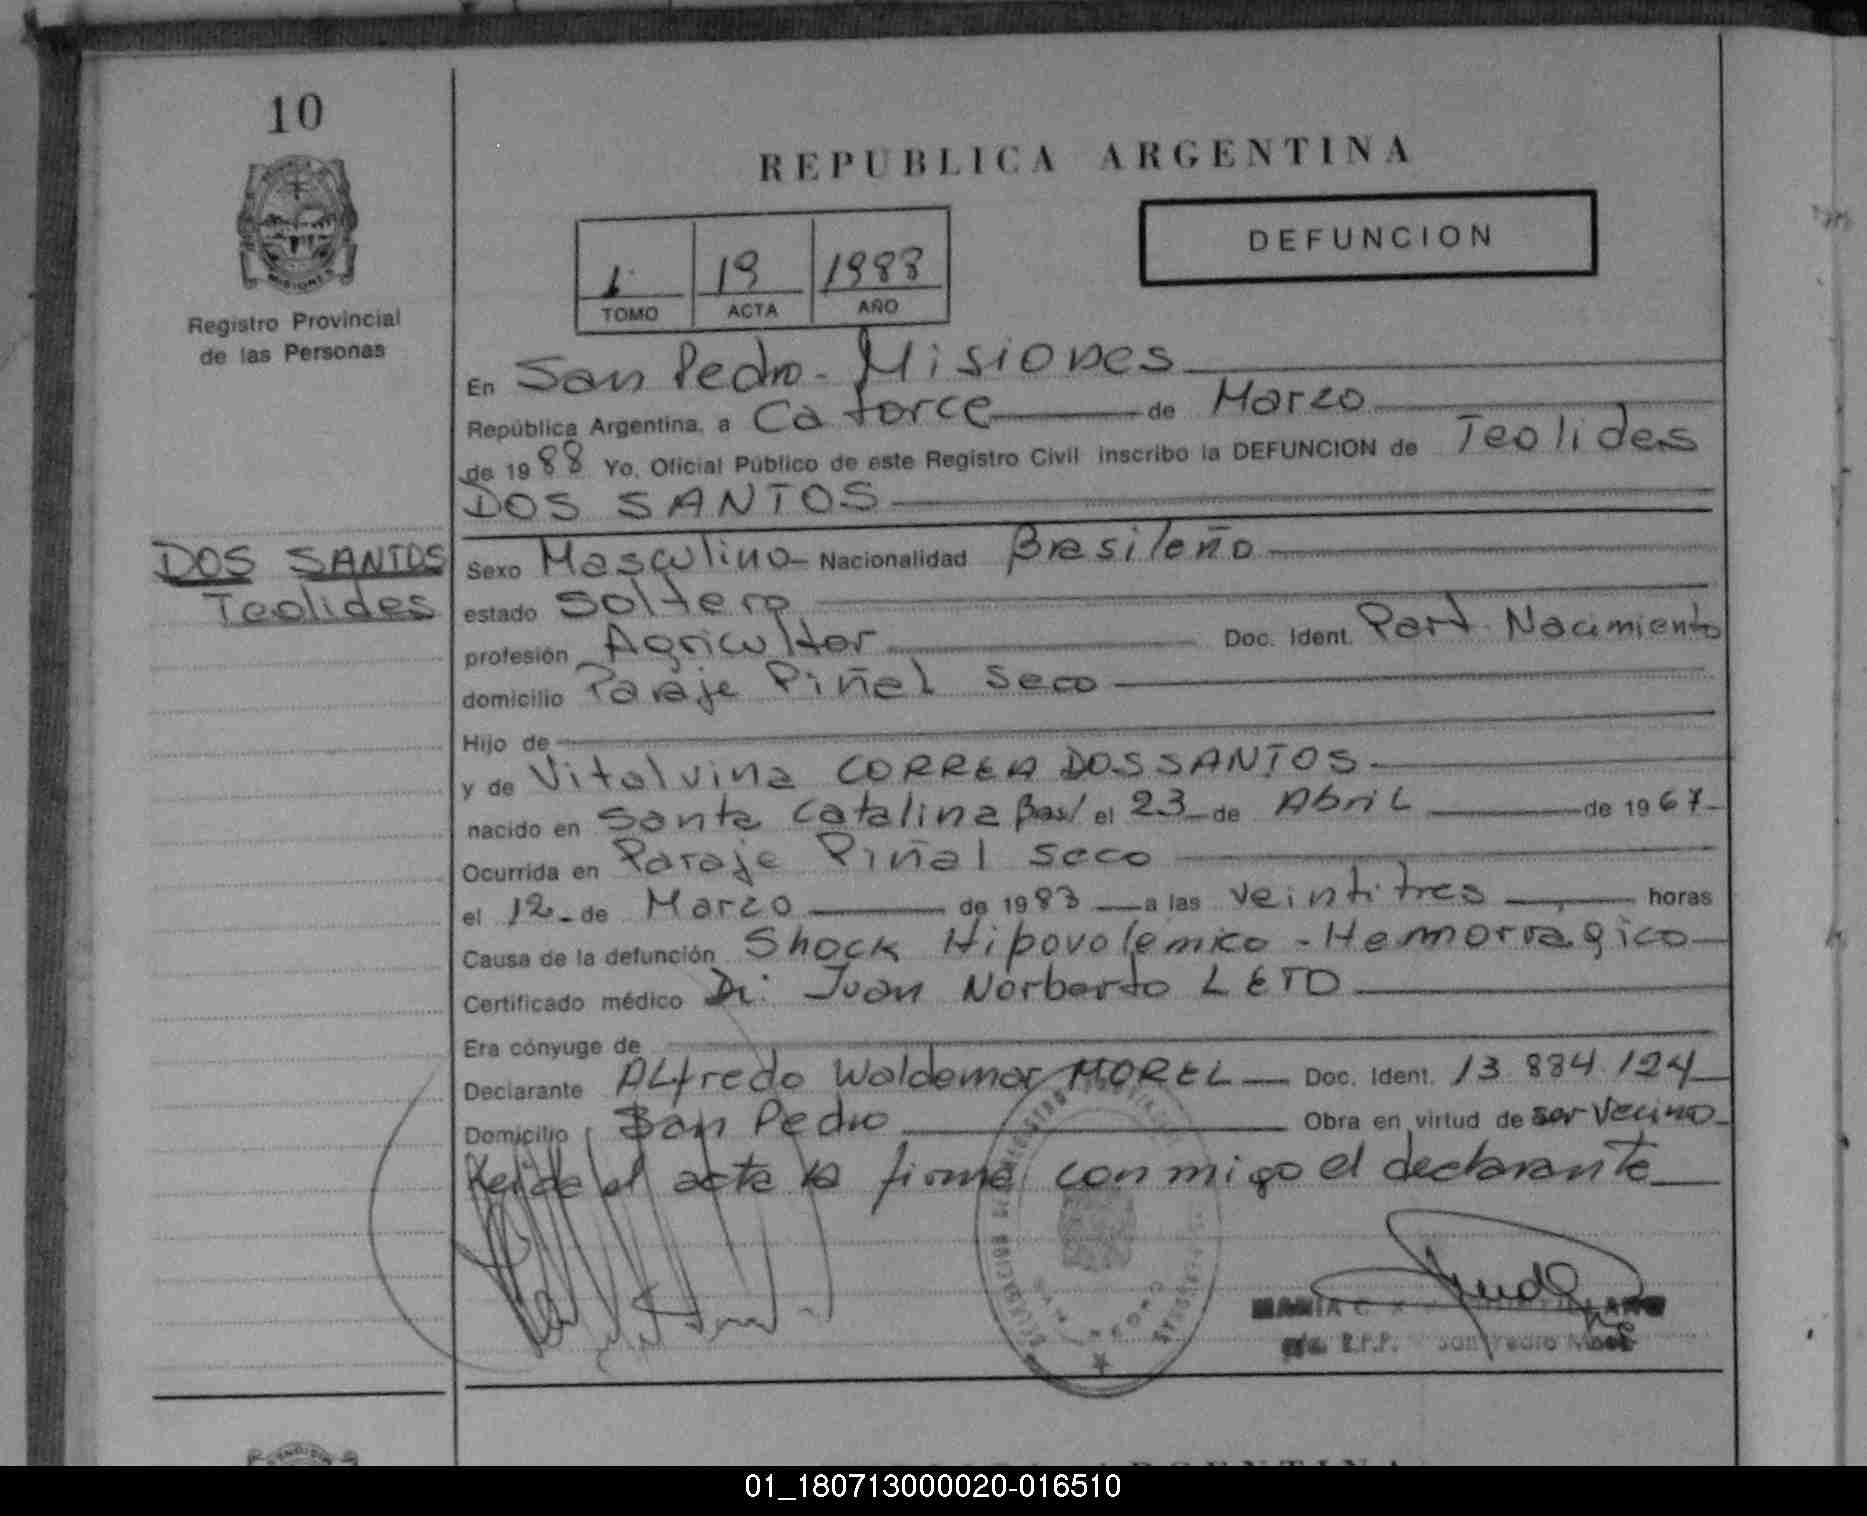 10
MISIONES
Registro Provincial
de las Personas
REPUBLICA ARGENTINA
DEFUNCION
1 19 1988
TOMO ACTA AÑO
En San Pedro - Misiones
República Argentina, a Catorce de Marzo
de 1988 Yo, Oficial Público de este Registro Civil inscribo la DEFUNCION de Teolides
DOS SANTOS
DOS SANTOS
Teolides
Sexo Masculino - Nacionalidad Brasileño
estado Soltero
profesión Agricultor Doc. Ident. Part. Nacimiento
domicilio Paraje Piñal Seco
Hijo de
y de Vitalvina CORREA DOS SANTOS
nacido en Santa Catalina Bras/ el 23 de Abril de 1967
Ocurrida en Paraje Piñal Seco
el 12 de Marzo de 1988 a las veintitres horas
Causa de la defunción Shock Hipovolemico - Hemorragico
Certificado médico Dr. Juan Norberto LETO
Era cónyuge de
Declarante ALfredo Waldemar MOREL Doc. Ident. 13.884.124
Domicilio San Pedro Obra en virtud de ser Vecino
Leida el acta la firma conmigo el declarante
MARIA
R.P.P. San Pedro
REPUBLICA ARGENTINA
01_180713000020-016510